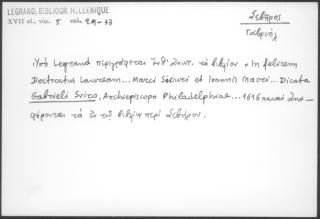 LEGRAND, BIBLIOGR. HELLENIQUE
XVII αἰ., τόμ. 5 σελ. 29-33
Σεβῆρος
Γαβριήλ
Ὑπὸ Legrand περιγράφεται ὑπ' ἀριθ. τὸ βιβλίον « In felicem
Doctratus Lauream... Marci Securi et Ioannis Matei... Dicata
Gabrieli Sviro, Archiepiscopo Philadelphiae... 1616 καὶ ἀνα-
φέρονται τὰ ἐν τῷ βιβλίῳ περὶ Σεβήρου.